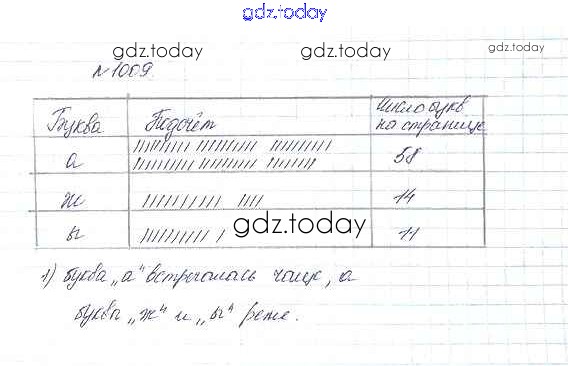 gdz.today
gdz.today
gdz.today
№1009.
Буква Подсчёт Число букв
на странице
а 58
ж 14
gdz.today
ы 11
1) буква „а" встречалась чаще, а
буквы „ж" и „ы" реже.